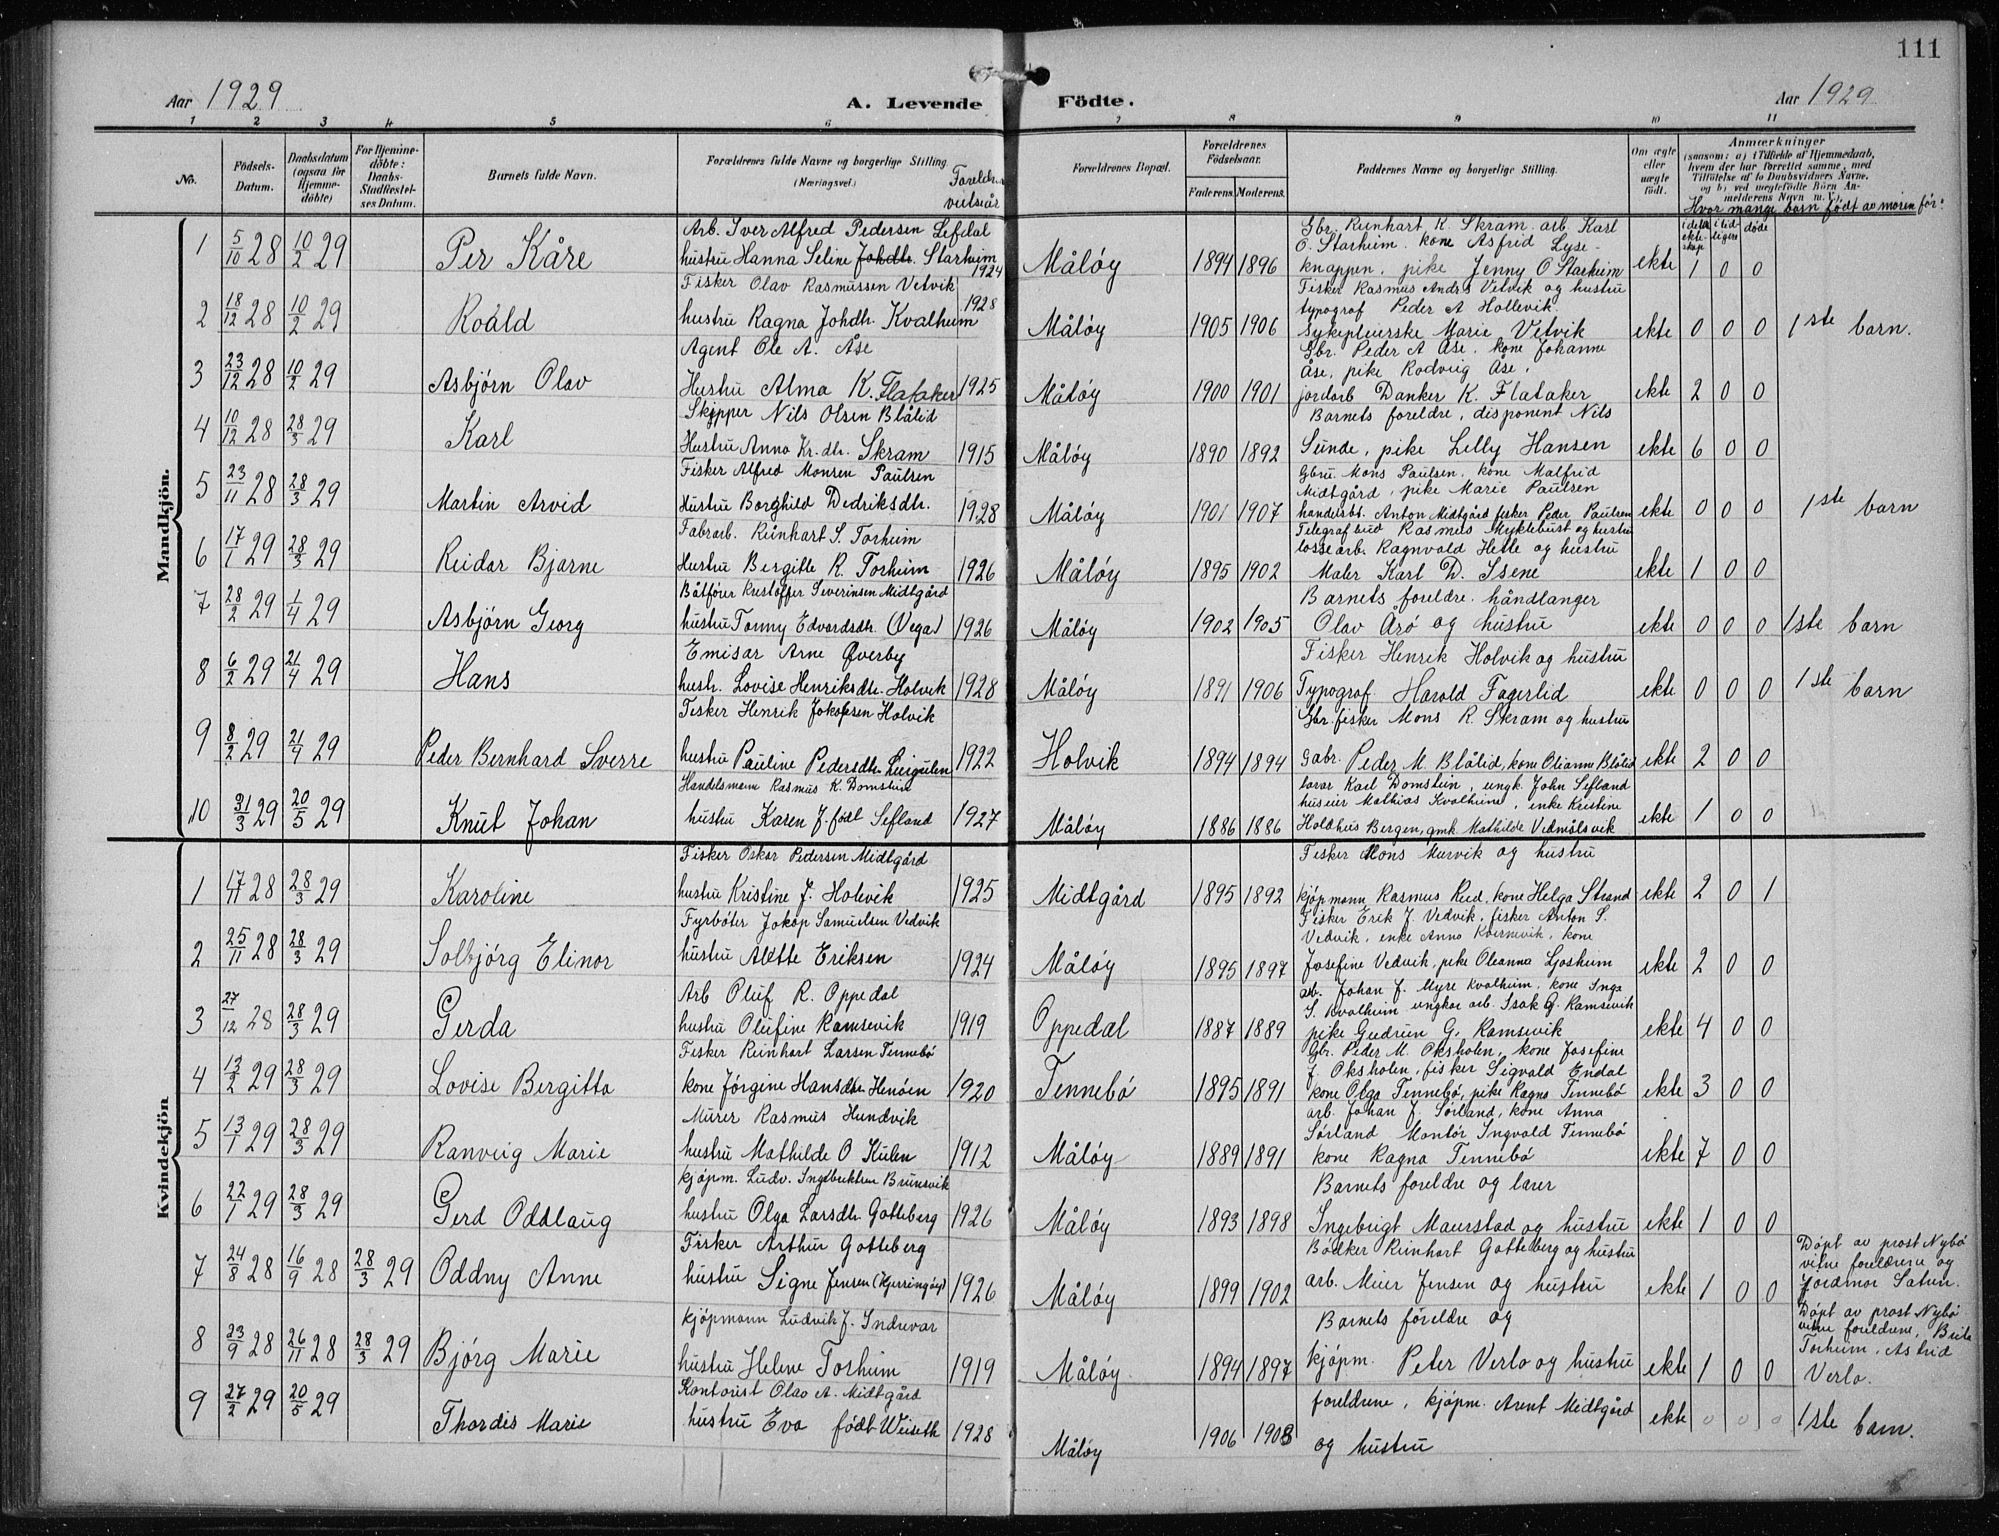 111
Aar 1929
A. Levende Födte.
Aar 1929
1 2 3 4 5 6 7 8 9 10 11
No.
Födsels-Datum.
Daabsdatum (ogsaa for Hjemme-döbte)
For Hjemme-döbte: Daabs-Stadfæstel-ses Datum.
Barnets fulde Navn.
Forældrenes fulde Navne og borgerlige Stilling. (Næringsvei.)
Foreldr. vielsesår
Forældrenes Bopæl.
Forældrenes Födselsaar.
Faderens. Moderens.
Faddernes Navne og borgerlige Stilling.
Om ægte eller uægte födt.
Anmærkninger
(saasom: a) i Tilfælde af Hjemmedaab, hvem der har forrettet samme, med Tilföielse af to Daabsvidners Navne, og b) ved uægtefödte Börn An-melderens Navn m. V.).
Hvor mange barn födt av moren før:
i dette ekte-skap
i tid-ligere
døde
Mandkjön.
1 5/10 28 10/2 29 Per Kåre
Arb. Iver Alfred Pedersen Lefdal
hustru Hanna Seline Johdtr. Starheim 1924
Måløy 1894 1896
Gbr. Reinhart K. Skram. arb. Karl
O. Starheim. kone Asfrid Lyse-
knappen. pike Jenny O Starheim
ekte 1 0 0
2 18/12 28 10/2 29 Roald
Fisker Olav Rasmussen Vetvik
hustru Ragna Johdtr. Kvalheim 1928
Måløy 1905 1906
Fisker Rasmus Andrs Vetvik og hustru
typograf Peder A Hollevik.
Sykepleierske Marie Vetvik
ekte 0 0 0 1ste barn.
3 23/12 28 10/2 29 Asbjørn Olav
Agent Ole A. Åse
Hustru Alma K. Flataker 1925
Måløy 1900 1901
Gbr. Peder A Åse. kone Johanne
Åse, pike Rodveig Åse,
jordarb Danker K. Flataker
ekte 2 0 0
4 10/12 28 28/3 29 Karl
Skipper Nils Olsen Blålid
Hustru Anna Kr. dtr. Skram 1915
Måløy 1890 1892
Barnets foreldre, disponent Nils
Sunde, pike Lilly Hansen
ekte 6 0 0
5 23/11 28 28/3 29 Martin Arvid
Fisker Alfred Monsen Paulsen
Hustru Borghild Dedriksdtr. 1928
Måløy 1901 1907
Gbru. Mons Paulsen, kone Malfrid
Midtgård, pike Marie Paulsen
handelsbt. Anton Midtgård fisker Peder Paulsen
ekte 0 0 0 1ste barn
6 17/1 29 28/3 29 Reidar Bjarne
Fabrarb. Reinhart S. Torheim
Hustru Bergitte R. Torheim 1926
Måløy 1895 1902
Telegrafbud Rasmus Myklebust og hustru
lossearb. Ragnvald Hette og hustru
Maler Karl D. Isene
ekte 1 0 0
7 28/2 29 1/4 29 Asbjørn Georg
Båtfører Kristoffer Severinsen Midtgård
hustru Tonny Edvardsdtr. (Vega) 1926
Måløy 1902 1905
Barnets foreldre. håndlanger
Olav Årø og hustru
ekte 0 0 0 1ste barn
8 6/2 29 21/4 29 Hans
Emisar Arne Øverby
hustr. Lovise Henriksdtr. Holvik 1928
Måløy 1891 1906
Fisker Henrik Holvik og hustru
Typograf Harald Fagerlid
ekte 0 0 0 1ste barn
9 8/2 29 21/4 29 Peder Bernhard Sverre
Fisker Henrik Jakobsen Holvik
hustru Pauline Pedersdtr. Leigulen 1922
Holvik 1894 1894
Gbr. fisker Mons R. Skram og hustru
Gabr. Peder M. Blålid, kone Olianne Blålid
ekte 2 0 0
10 31/3 29 20/5 29 Knut Johan
Handelsmann Rasmus K. Domstein
hustru Karen J. født Sefland 1927
Måløy 1886 1886
lærer Karl Domstein, ungk. John Sefland
huseier Mathias Kvalheim, enke Kristine
Holdhus Bergen, gmk Mathilde Vedmålsvik
ekte 1 0 0
Kvindekjön
1 17/11 28 28/3 29 Karoline
Fisker Oskar Pedersen Midtgård
hustru Kristine J. Holevik 1925
Midtgård 1895 1892
Fisker Mons Marvik og hustru
kjøpmann Rasmus Reed, kone Helga Strand
ekte 2 0 1
2 25/11 28 28/3 29 Solbjørg Elinor
Fyrbøter Jakop Samuelsen Vedvik
hustru Alette Eriksen 1924
Måløy 1895 1897
Fisker Erik J. Vedvik, fisker Anton S.
Vedvik, enke Anna Kvernevik, kone
Josefine Vedvik, pike Oleanna Ljosheim
ekte 2 0 0
3 27/12 28 28/3 29 Gerda
Arb Oluf R. Oppedal
hustru Olufine Ramsevik 1919
Oppedal 1887 1889
arb. Johan J. Myre Kvalheim, kone Inga
S. Kvalheim ungkar arb. Isak G. Ramsevik
pike Gudrun G. Ramsevik
ekte 4 0 0
4 13/2 29 28/3 29 Lovise Bergitta
Fisker Reinhart Larsen Tennebø
kone Jørgine Hansdtr Henøen 1920
Tennebø 1895 1891
Gbr. Peder M. Oksholen, kone Josefine
J. Oksholen, fisker Sigvald Endal
kone Olga Tennebø, pike Ragna Tennebø
ekte 3 0 0
5 13/1 29 28/3 29 Ranveig Marie
Murer Rasmus Hundvik
hustru Mathilde O Hulen 1912
Måløy 1889 1891
arb. Johan J. Sørland, kone Anna
Sørland Montør Ingvald Tennebø
kone Ragna Tennebø
ekte 7 0 0
6 22/1 29 28/3 29 Gerd Oddlaug
kjøpm. Ludv. Ingebrektsen Brunsvik
hustru Olga Larsdtr. Gotteberg 1926
Måløy 1893 1898
Barnets foreldre og lærer
Ingebrigt Maurstad og hustru
ekte 1 0 0
7 24/8 28 16/9 28 28/3 29 Oddny Anne
Fisker Arthur Gotteberg
hustru Signe Jensen (Kjerringøy) 1926
Måløy 1899 1902
Bødker Reinhart Gotteberg og hustru
arb. Meier Jensen og hustru
ekte 1 0 0
Døpt av prost Nybø
vitne foreldrene og
Jordmor Satun.
8 23/9 28 26/11 28 28/3 29 Bjørg Marie
kjøpmann Ludvik J. Indrevar
hustru Helene Torheim 1919
Måløy 1894 1897
Barnets foreldre og
kjøpm. Peter Verlo og hustru
ekte 1 0 0
Døpt av prost Nybø
vitne foreldrene, Brite
Torheim, Astrid
Verlo.
9 27/2 29 20/5 29 Thordis Marie
Kontorist Olav A. Midtgård
hustru Eva født Weiseth 1928
Måløy 1906 1903
foreldrene, kjøpm. Arent Midtgård
og hustru
ekte 0 0 0 1ste barn.